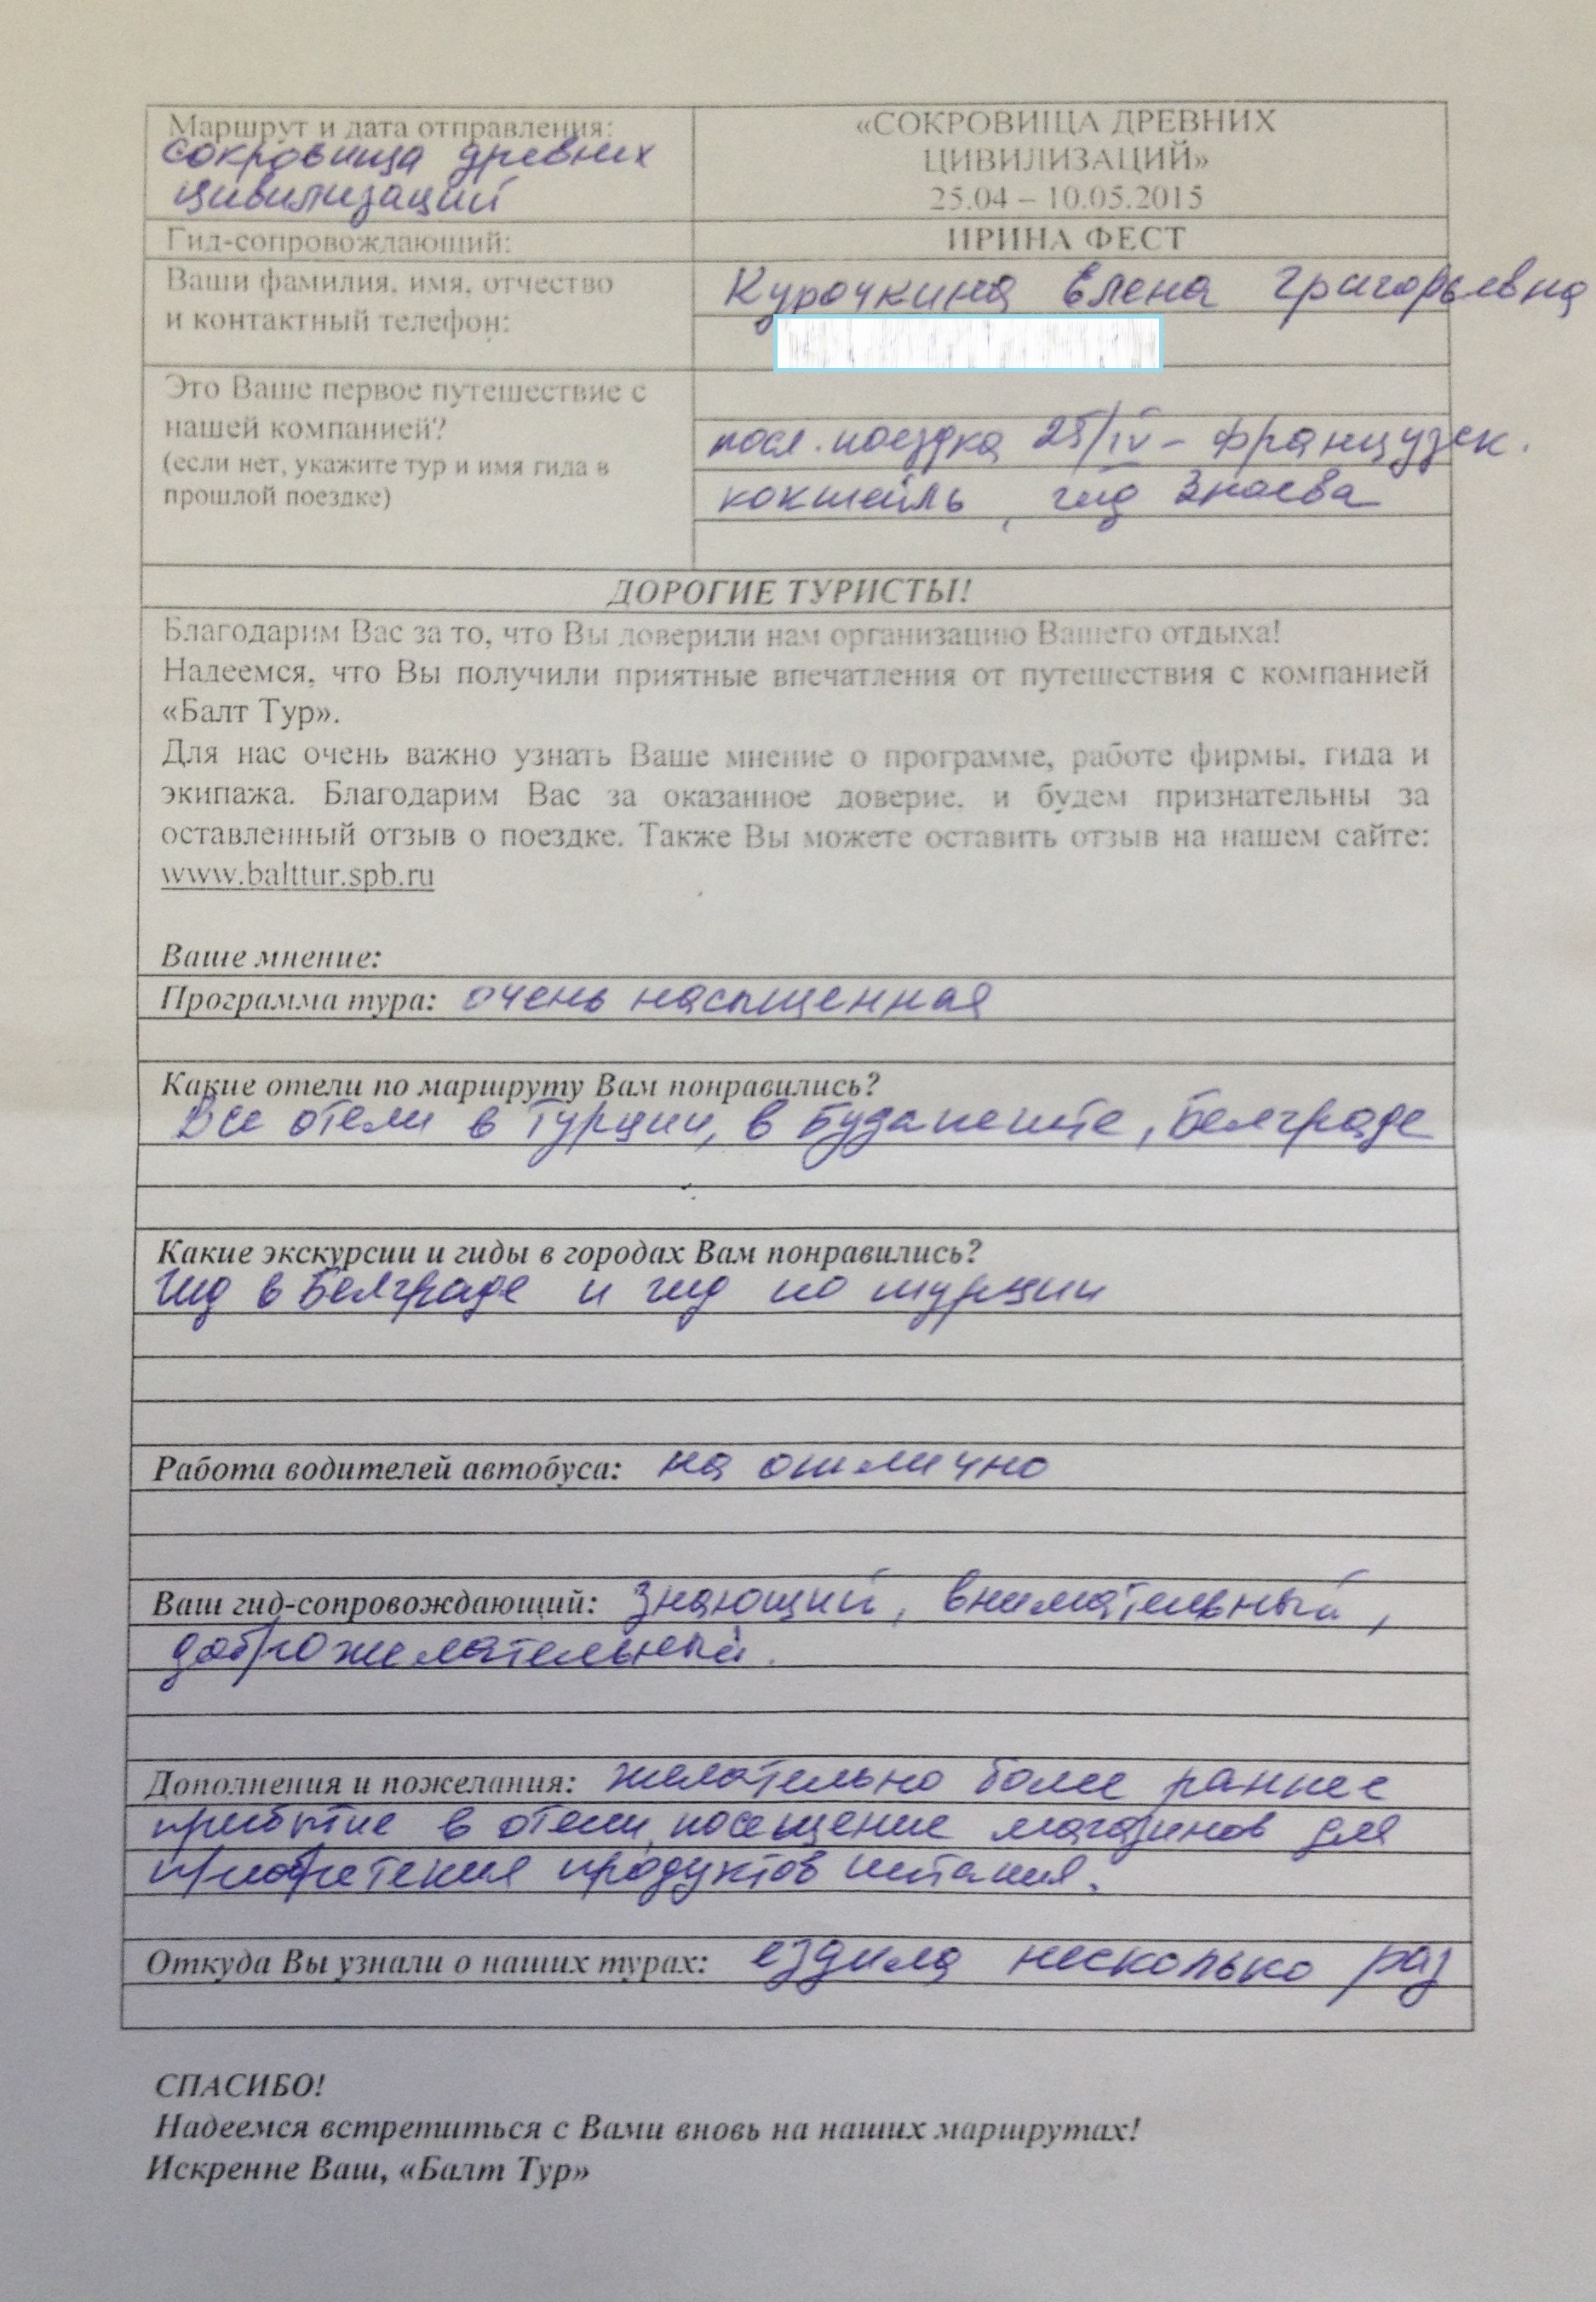 Маршрут и дата отправления:
сокровища древних
цивилизаций
«СОКРОВИЩА ДРЕВНИХ
ЦИВИЛИЗАЦИЙ»
25.04 – 10.05.2015
Гид-сопровождающий:
ИРИНА ФЕСТ
Ваши фамилия, имя, отчество
и контактный телефон:
Курочкина Елена Григорьевна
Это Ваше первое путешествие с
нашей компанией?
(если нет, укажите тур и имя гида в
прошлой поездке)
посл. поездка 25/IV – Французск.
коктейль, гид Знаева
ДОРОГИЕ ТУРИСТЫ!
Благодарим Вас за то, что Вы доверили нам организацию Вашего отдыха!
Надеемся, что Вы получили приятные впечатления от путешествия с компанией
«Балт Тур».
Для нас очень важно узнать Ваше мнение о программе, работе фирмы, гида и
экипажа. Благодарим Вас за оказанное доверие, и будем признательны за
оставленный отзыв о поездке. Также Вы можете оставить отзыв на нашем сайте:
www.balttur.spb.ru
Ваше мнение:
Программа тура: очень насыщенная
Какие отели по маршруту Вам понравились?
Все отели в Турции, в Будапеште, Белграде
Какие экскурсии и гиды в городах Вам понравились?
Гид в Белграде и гид по турции
Работа водителей автобуса: на отлично
Ваш гид-сопровождающий: Знающий, внимательный,
доброжелательный.
Дополнения и пожелания: желательно более раннее
прибытие в отели, посещение магазинов для
приобретения продуктов питания.
Откуда Вы узнали о наших турах: ездила несколько раз
СПАСИБО!
Надеемся встретиться с Вами вновь на наших маршрутах!
Искренне Ваш, «Балт Тур»